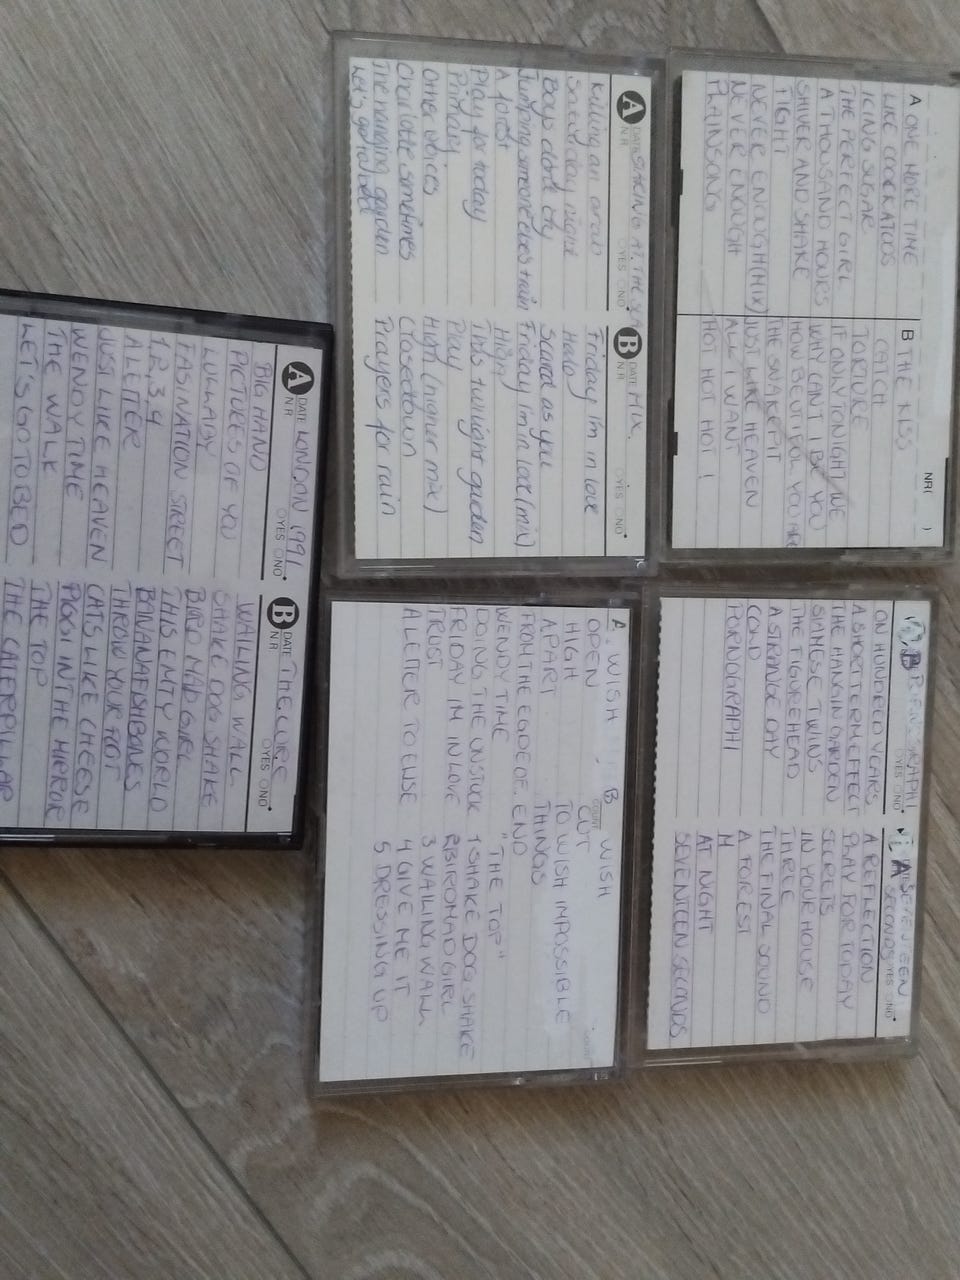 A ONE MORE TIME
LIKE COCKATOOS
ICING SUGAR
THE PERFECT GIRL
A THOUSAND HOURS
SHIVER AND SHAKE
FIGHT
NEVER ENOUGH (MIX)
NEVER ENOUGH
PLAINSONG
NR( )
B THE KISS
CATCH
TORTURE
IF ONLY TONIGHT WE
WHY CAN'T I BE YOU
HOW BEUTIFUL YOU ARE
THE SNAKEPIT
JUST LIKE HEAVEN
ALL I WANT
HOT HOT HOT!
A DATE STARING AT THE SEA
N.R. YES NO
Killing an arab
Saterday night
Boys don't cry
Jumping someone elses train
A forest
Play for today
Primary
Other voices
Charlotte sometimes
The hanging garden
Let's go to bed
B DATE MIX.
N.R. YES NO
Friday I'm in love
Halo
Scared as you
Friday I'm in love (mix)
High
This twilight garden
Play
High (higher mix)
Closedown
Prayers for rain
B PORNOGRAPHI
YES NO
ON HUNDRED YEARS
A SHORT TERM EFFECT
THE HANGIN GARDEN
SIAMESE TWINS
THE FIGUREHEAD
A STRANGE DAY
COLD
PORNOGRAPHI
A SEVENTEEN
SECONDS YES NO
A REFLECTION
PLAY FOR TODAY
SECRETS
IN YOUR HOUSE
THREE
THE FINAL SOUND
A FOREST
M
AT NIGHT
SEVENTEEN SECONDS
A. WISH
OPEN
HIGH
APART
FROM THE EGDE OF.
WENDY TIME
DOING THE UNSTUCK
FRIDAY IM IN LOVE
TRUST
A LETTER TO ELISE
B WISH
CUT
TO WISH IMPOSSIBLE
THINGS
END
"THE TOP"
1 SHAKE DOG SHAKE
2 BIRDMAD GIRL
3 WAILING WALL
4 GIVE ME IT
5 DRESSING UP
A DATE LONDON 1991
N.R. YES NO
BIG HAND
PICTURES OF YOU
LULLABY
FASINATION STREET
1,2,3,4
A LETTER
JUST LIKE HEAVEN
WENDY TIME
THE WALK
LET'S GO TO BED
B DATE THE CURE
N.R. YES NO
WAILING WALL
SHAKE DOG SHAKE
BIRD MAD GIRL
THIS EMTY WORLD
BANANAFISHBONES
THROW YOUR FOOT
CATS LIKE CHEESE
PIGGI IN THE MIRROR
THE TOP
THE CATERPILLAR